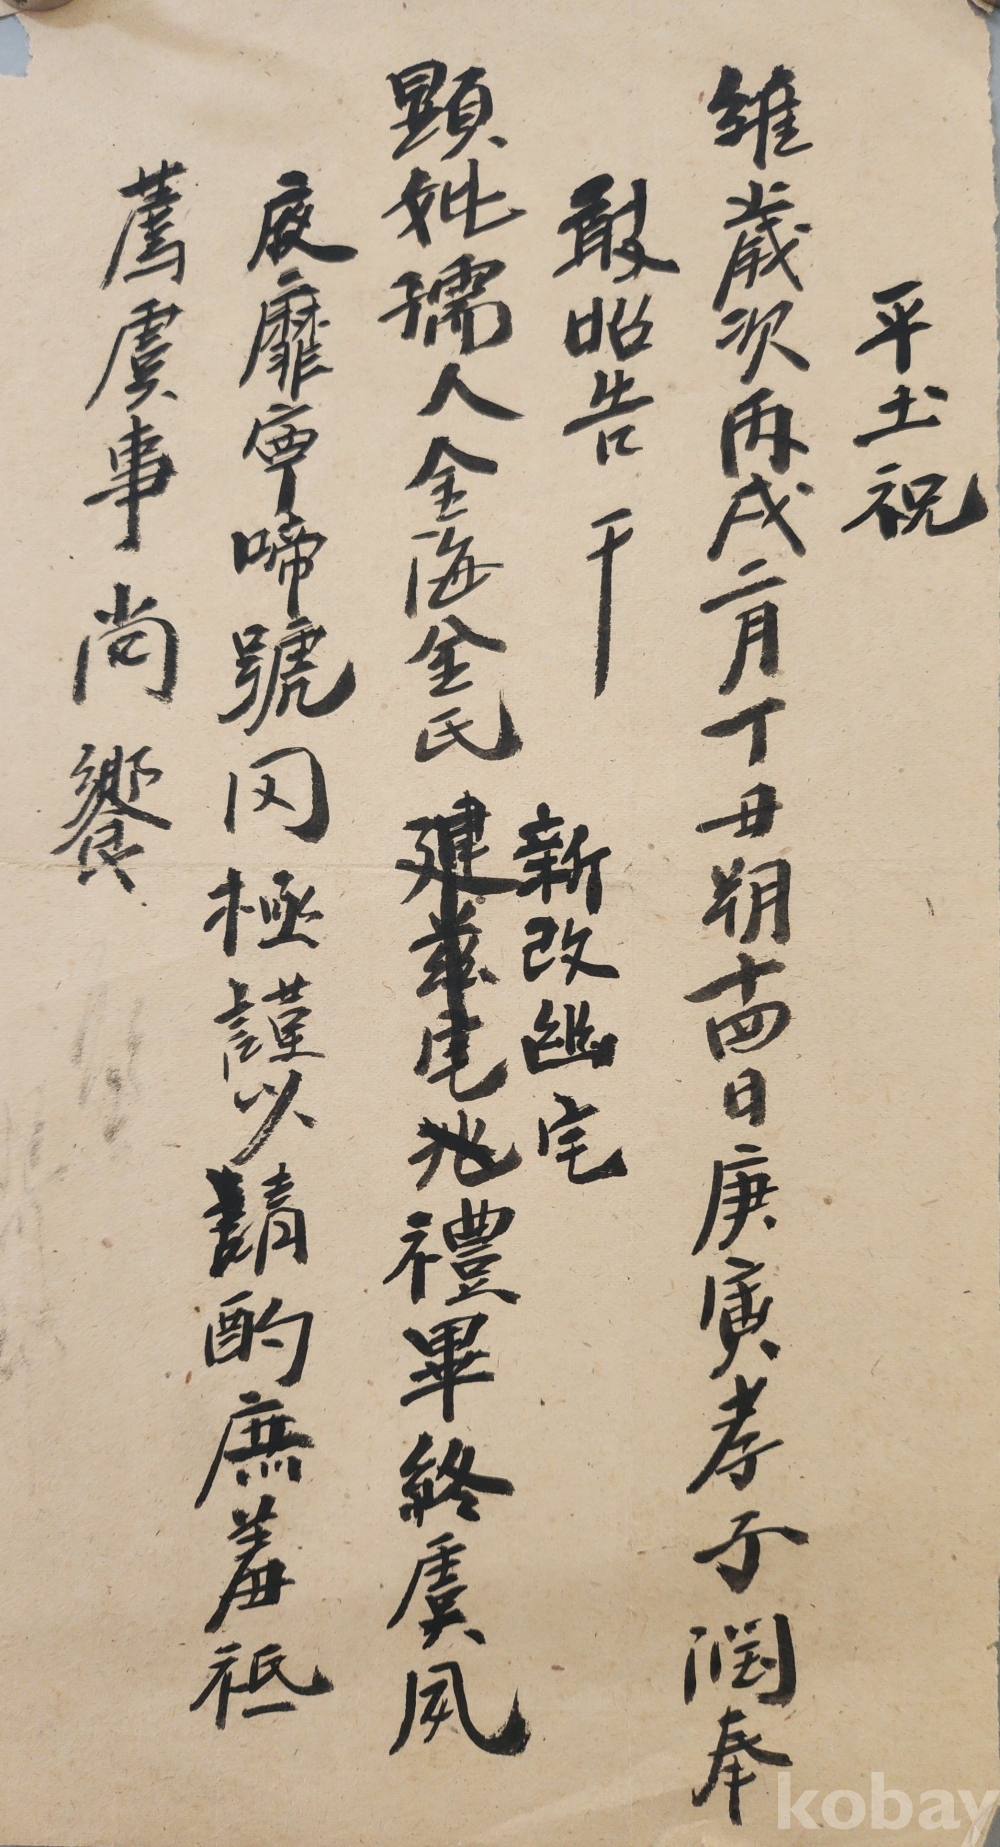 平土祝
維歲次丙戌二月丁丑朔十四日庚寅孝子潤奉
敢昭告于
新改幽宅
顯妣孺人金海金氏建茲宅兆禮畢終虞夙
夜靡寧啼號罔極謹以請酌庶羞祗
薦虞事尚饗
kobay